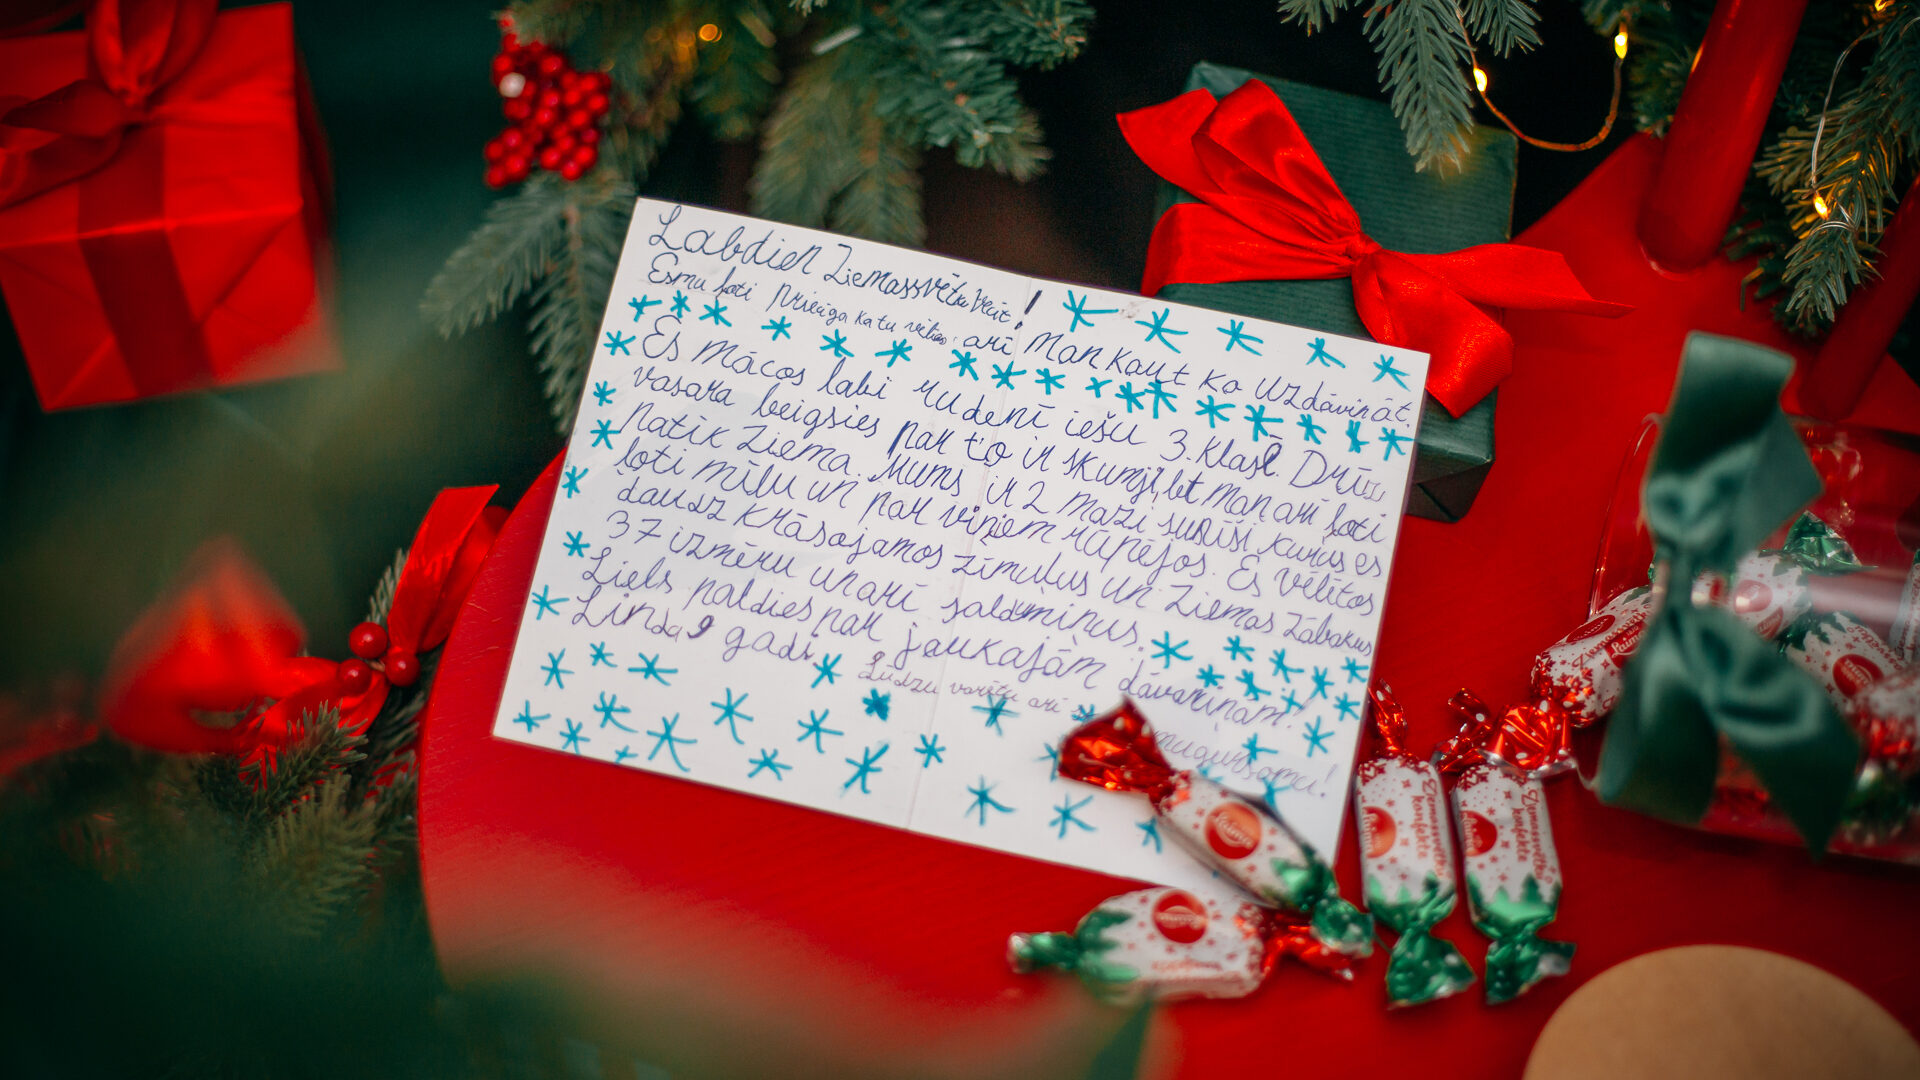 Labdien Ziemassvētku vecīt!
Esmu ļoti priecīga ka tu vēlies arī man kaut ko uzdāvināt.
Es mācos labi rudenī iešu 3. klasē. Drīz
vasara beigsies par to ir skumji, bet man arī ļoti
patīk ziema. Mums ir 2 mazi sunīši kurus es
ļoti mīlu un par viņiem rūpējos. Es vēlētos
daudz krāsojamos zīmuļus un ziemas zābakus
37 izmēru un arī saldumiņus.
Liels paldies par jaukajām dāvaniņam!
Linda 9 gadi
Lūdzu varētu arī mugursomu!
Laima
Ziemassvētku
konfekte
Laima
Ziemassvētku
konfekte
Laima
Laima
Ziemassvētku
Laima
Laima